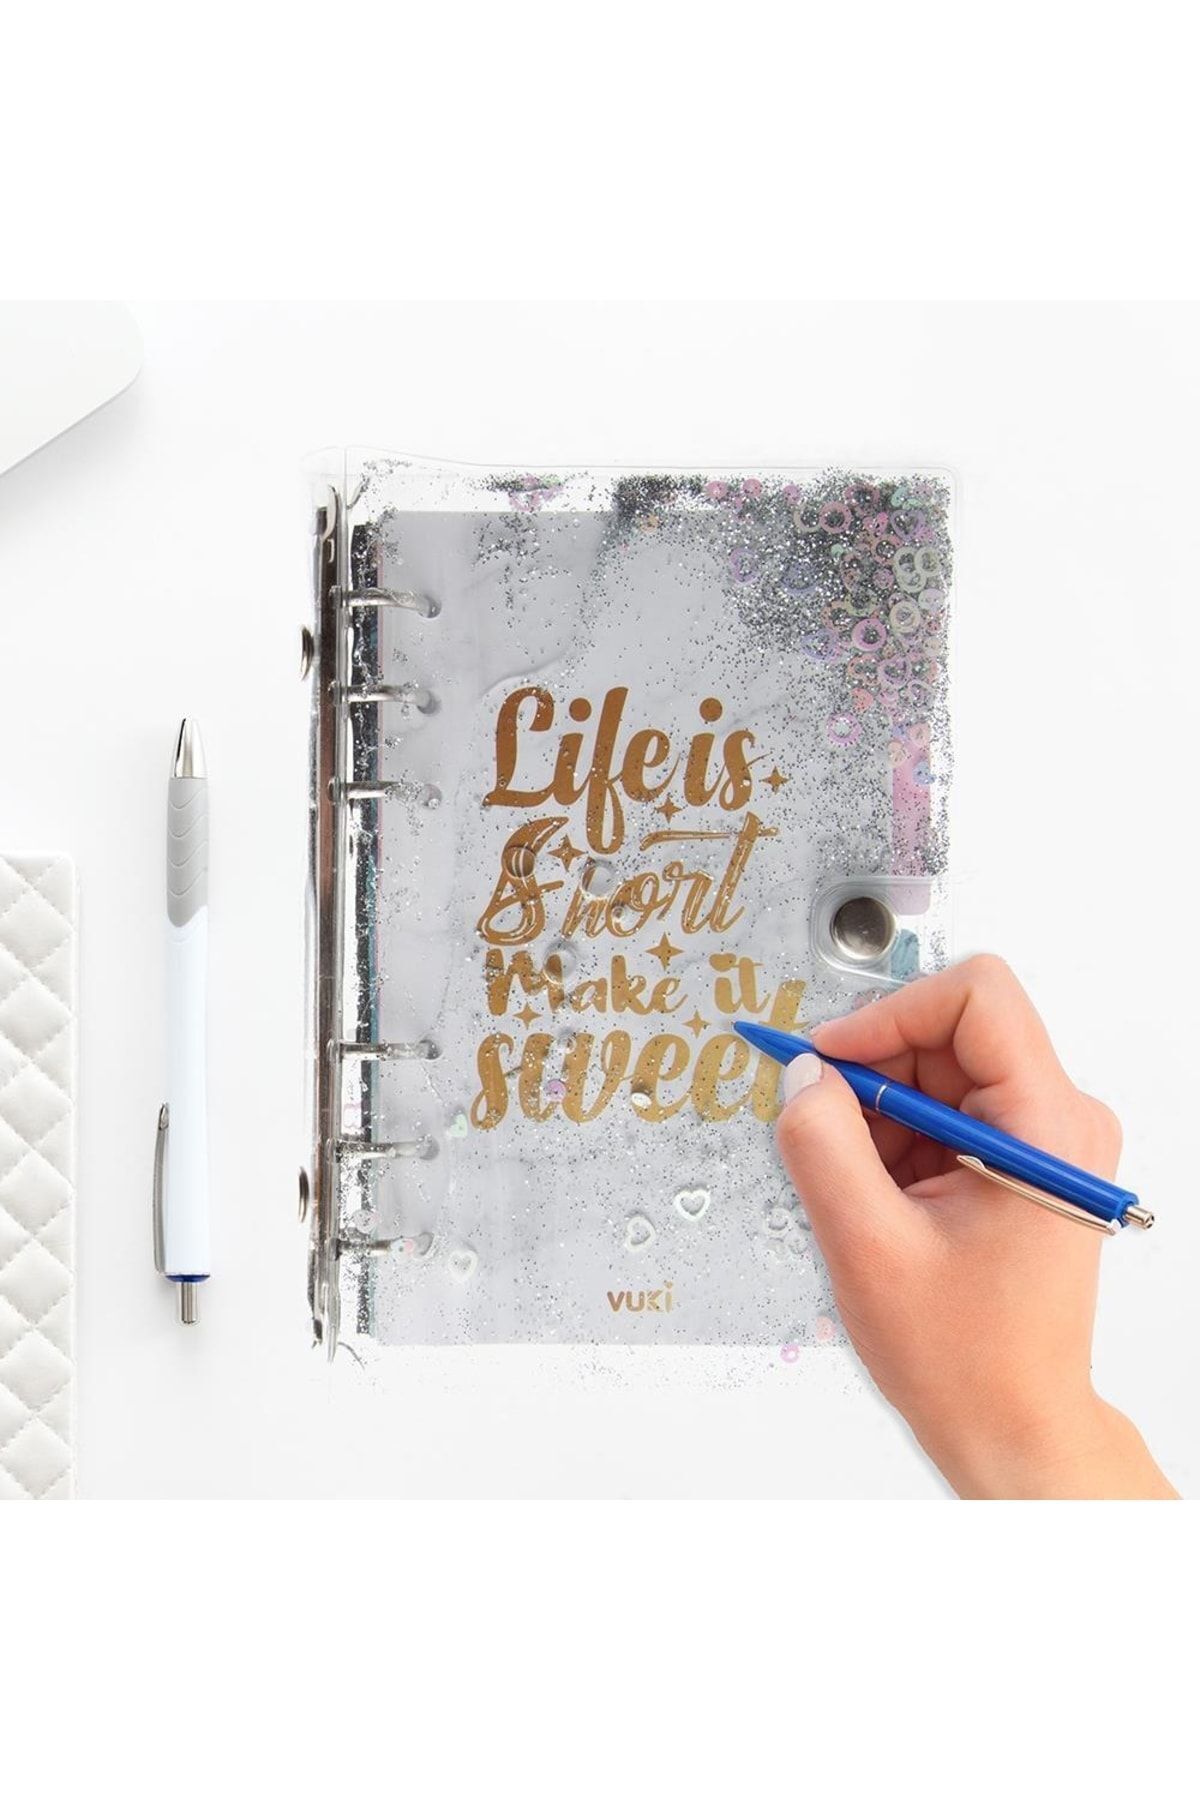 Life is
Short
Make it
sweet
VUKi